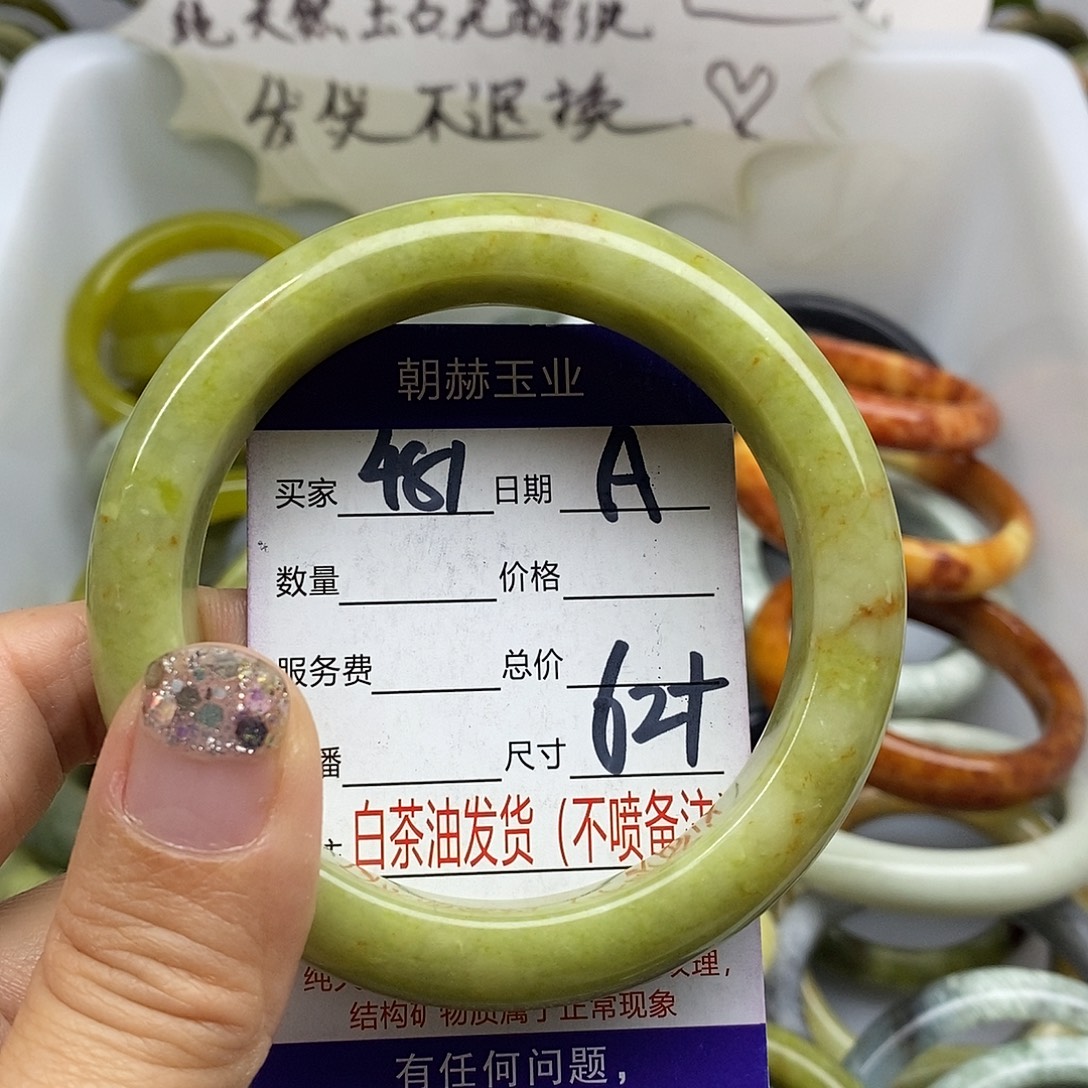 纯天然玉石
发货不退换
朝赫玉业
买家 481 日期 A
数量 价格
服务费 总价
播 尺寸 62+
白茶油发货（不喷备注
纯 纹理，
结构矿物质属于正常现象
有任何问题，